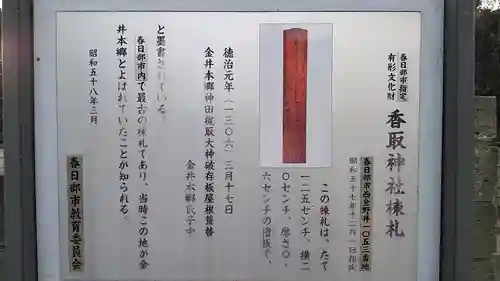 春日部市指定
有形文化財
香取神社棟札
春日部市西金野井一〇五三番地
昭和五十七年十二月一日指定
この棟札は、たて
一二五センチ、横二
〇センチ、厚さ〇・
六センチの楷板で、
徳治元年（一三〇六）三月十七日
金井本郷神田梶取大神破存板屋根葺替
金井本郷氏子中
と墨書されている。
春日部市内で最古の棟札であり、当時この地が金
井本郷とよばれていたことが知られる。
昭和五十八年三月
春日部市教育委員会